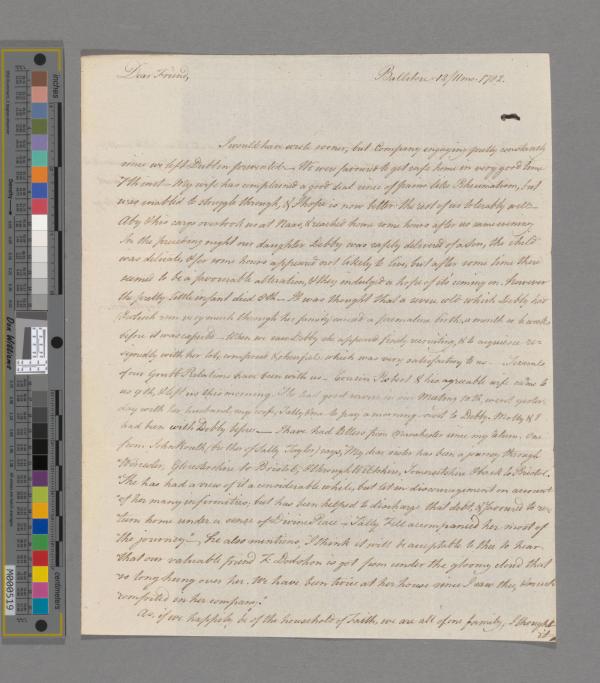 Dear Friend, Ballitore 13/11mo. 1782.
I would have wrote sooner, but Company engaging pretty constantly
since we left Dublin prevented. We were favour'd to get safe home in very good time
7th inst. My wife has complained a good deal since of pains like Rheumatism, but
was enabled to struggle through, & I hope is now better: the rest of us tolerably well.
Aby & his cargo overtook us at Naas, & reached home some hours after us same evening.
In the preceding night our daughter Debby was safely delivered of a Son, the child
was delicate, & for some hours appeared not likely to live, but after some time there
seemed to be a favourable alteration, & they indulged a hope of its coming on. however
the pretty little infant died 8th. It was thought that a severe cold which Debby had
& which run very much through her family caused a premature birth, a month or 6 weeks
before it was expected. When we saw Debby she appeared finely recruiting, & to acquiesce re-
signedly with her lot, composed & cheerful: which was very satisfactory to us. Several
of our Relations have been with us. Cousin Robert & his agreeable wife came to
us 9th, & left us this morning. She had good service in our Meeting 10th, went yester-
day with her husband, my wife, Sally &me to pay a morning visit to Debby. Molly & I
had been with Debby before. I have had Letters from Manchester since my return, one
from John Routh, (brother of Sally Taylor) says, "My dear sister has been a journey through
Worcester, Glocestershire to Bristol, & through Wiltshire, Somersetshire & back to Bristol.
"She has had a view of it a considerable while, but let in discouragement on account
"of her many infirmities, but has been helped to discharge that debt, & favoured to re-
turn home under a sense of Divine Peace. Sally Fell accompanied her most of
"the journey." He also mentions "I think it will be acceptable to thee to hear
"that our valuable friend is got from under the gloomy cloud that
"so long hung over her. We have been twice at her house since I saw thee, &
comforted in her company."
As, if we happily be of the household of Faith, we are all of one family, I thought
it
inches
centimetres
Don Williams
M000519